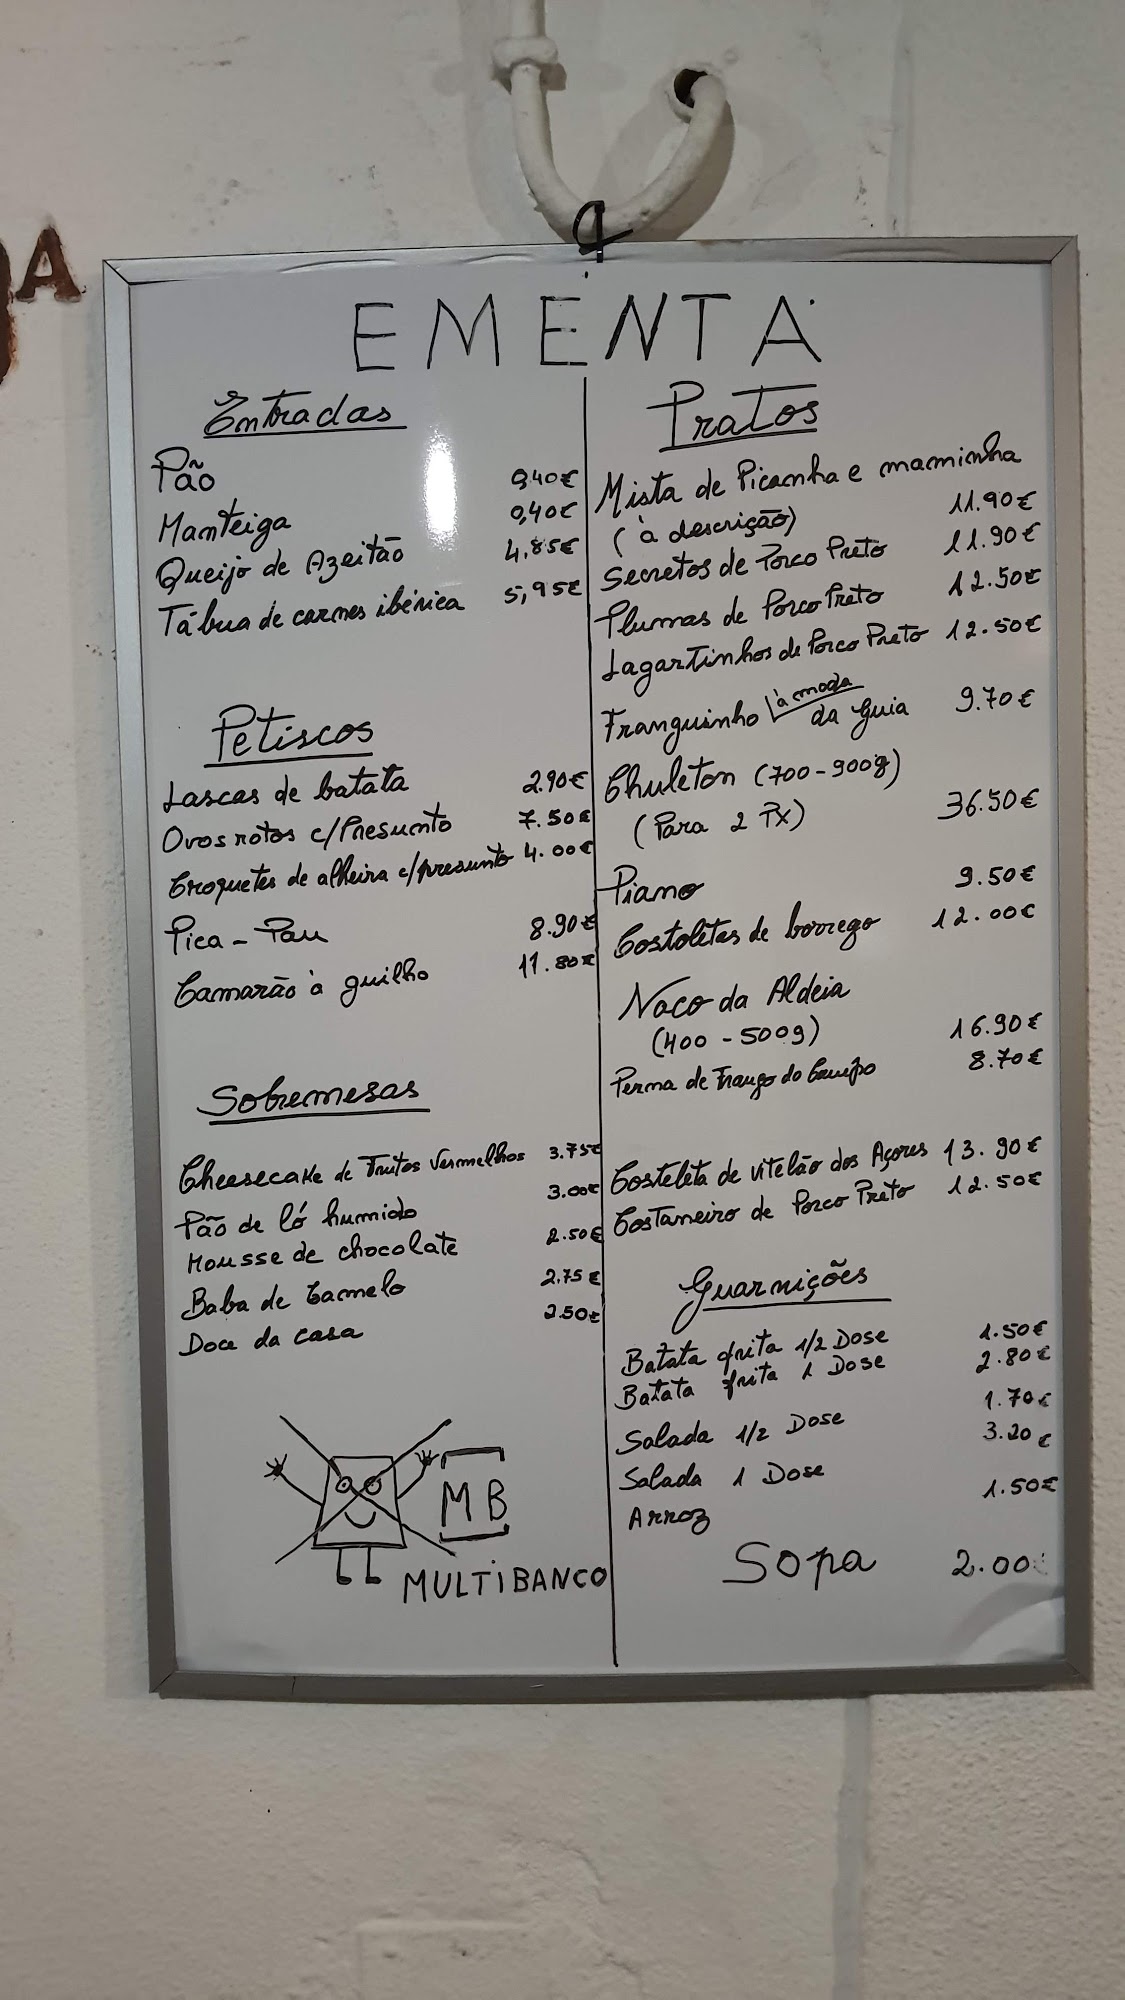 A
EMENTA
Entradas
Pão 0,40€
Manteiga 0,40€
Queijo de Azeitão 4,85€
Tábua de carnes ibérica 5,95€
Petiscos
Lascas de batata 2.90€
Ovos rotos c/Presunto 7.50€
Croquetes de alheira c/presunto 4.00€
Pica-Pau 8.90€
Camarão à guilho 11.80€
Sobremesas
Cheesecake de Frutos Vermelhos 3.75€
Pão de ló humido 3.00€
Mousse de chocolate 2.50€
Baba de Camelo 2,75€
Doce da casa 2.50€
MB
MULTIBANCO
Pratos
Mista de Picanha e maminha
(à descrição) 11.90€
Secretos de Porco Preto 11.90€
Plumas de Porco Preto 12.50€
Lagartinhos de Porco Preto 12.50€
Franguinho à moda da Guia 9.70€
Chuleton (700-900g)
(Para 2 Px) 36.50€
Piano 9.50€
Costoletas de borrego 12.00€
Naco da Aldeia
(400-500g) 16.90€
Perna de Frango do Campo 8.70€
Costeleta de vitelão dos Açores 13.90€
Costaneiro de Porco Preto 12.50€
Guarnições
Batata frita 1/2 Dose 1.50€
Batata frita 1 Dose 2.80€
Salada 1/2 Dose 1.70€
Salada 1 Dose 3.20€
Arroz 1.50€
Sopa 2.00€